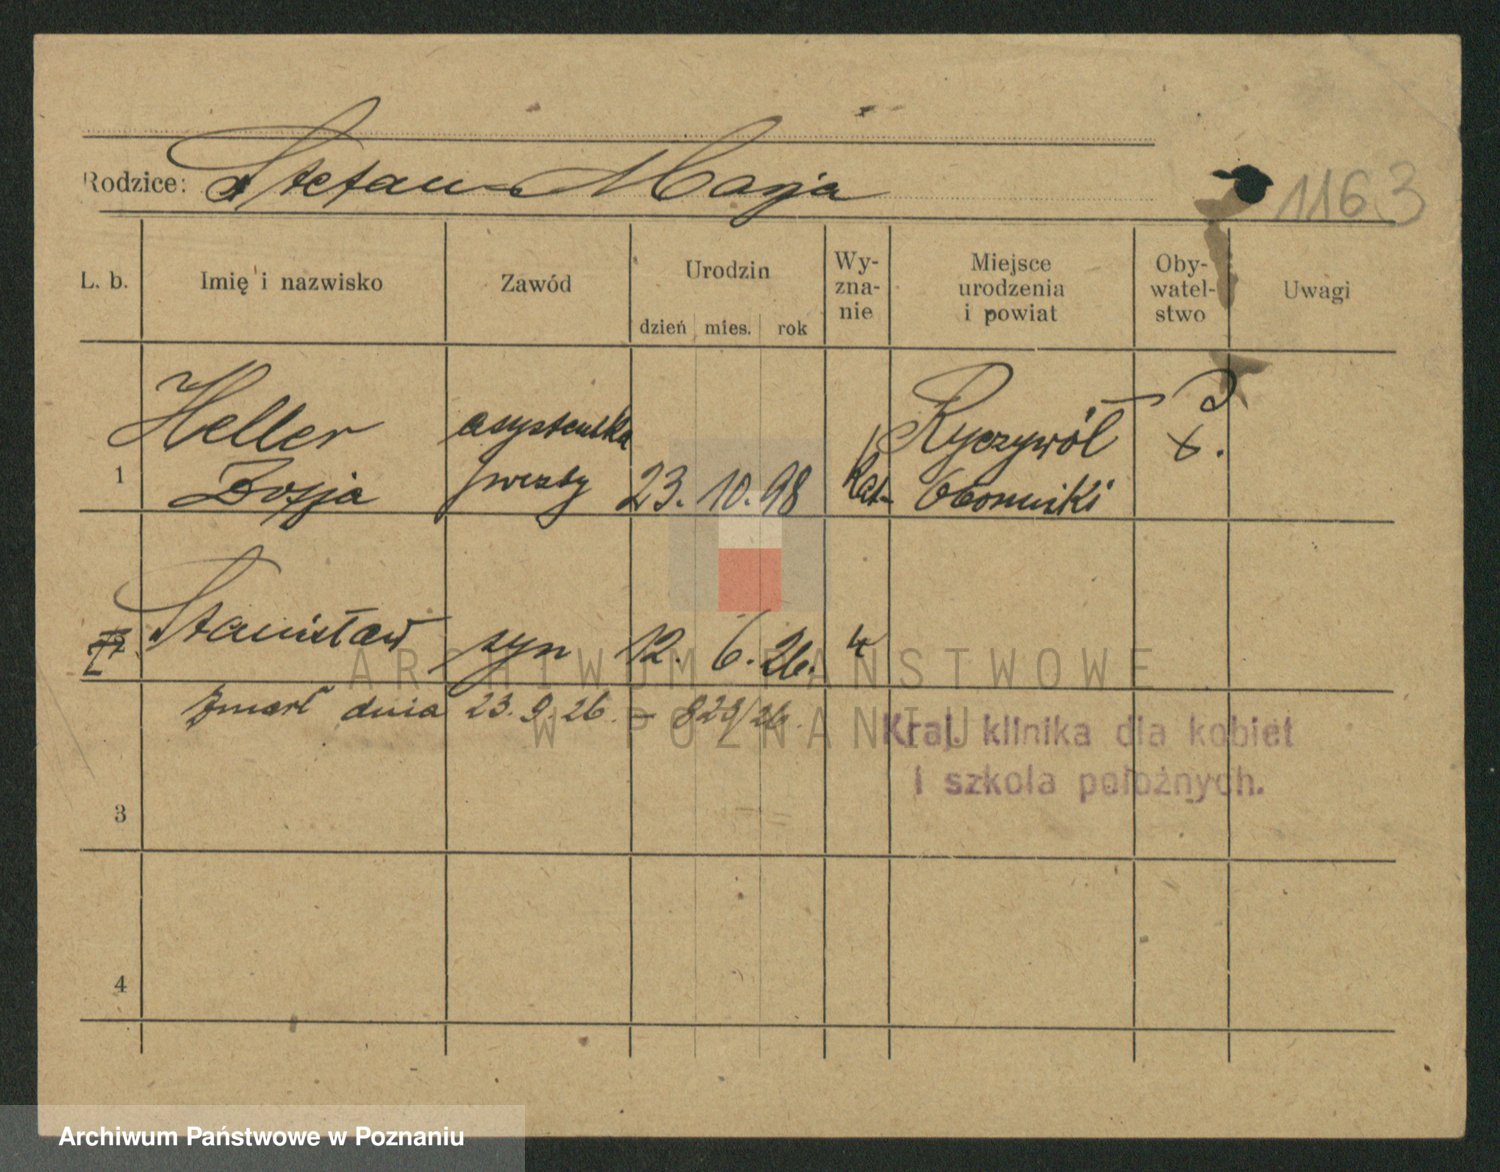 Rodzice: Stefan - Marja
1163
L. b. Imię i nazwisko Zawód Urodzin dzień mies. rok Wy-zna-nie Miejsce urodzenia i powiat Oby-watel-stwo Uwagi
Heller asystentka Ryczywół P.
1 Zofja 23. 10. 98 kat. Oborniki
Stanisław syn 12. 6. 26. k
zmarł dnia 23. 9. 26. - 823/26.
Kraj. klinika dla kobiet
i szkoła położnych.
3
4
ARCHIWUM PAŃSTWOWE
W POZNANIU
Archiwum Państwowe w Poznaniu